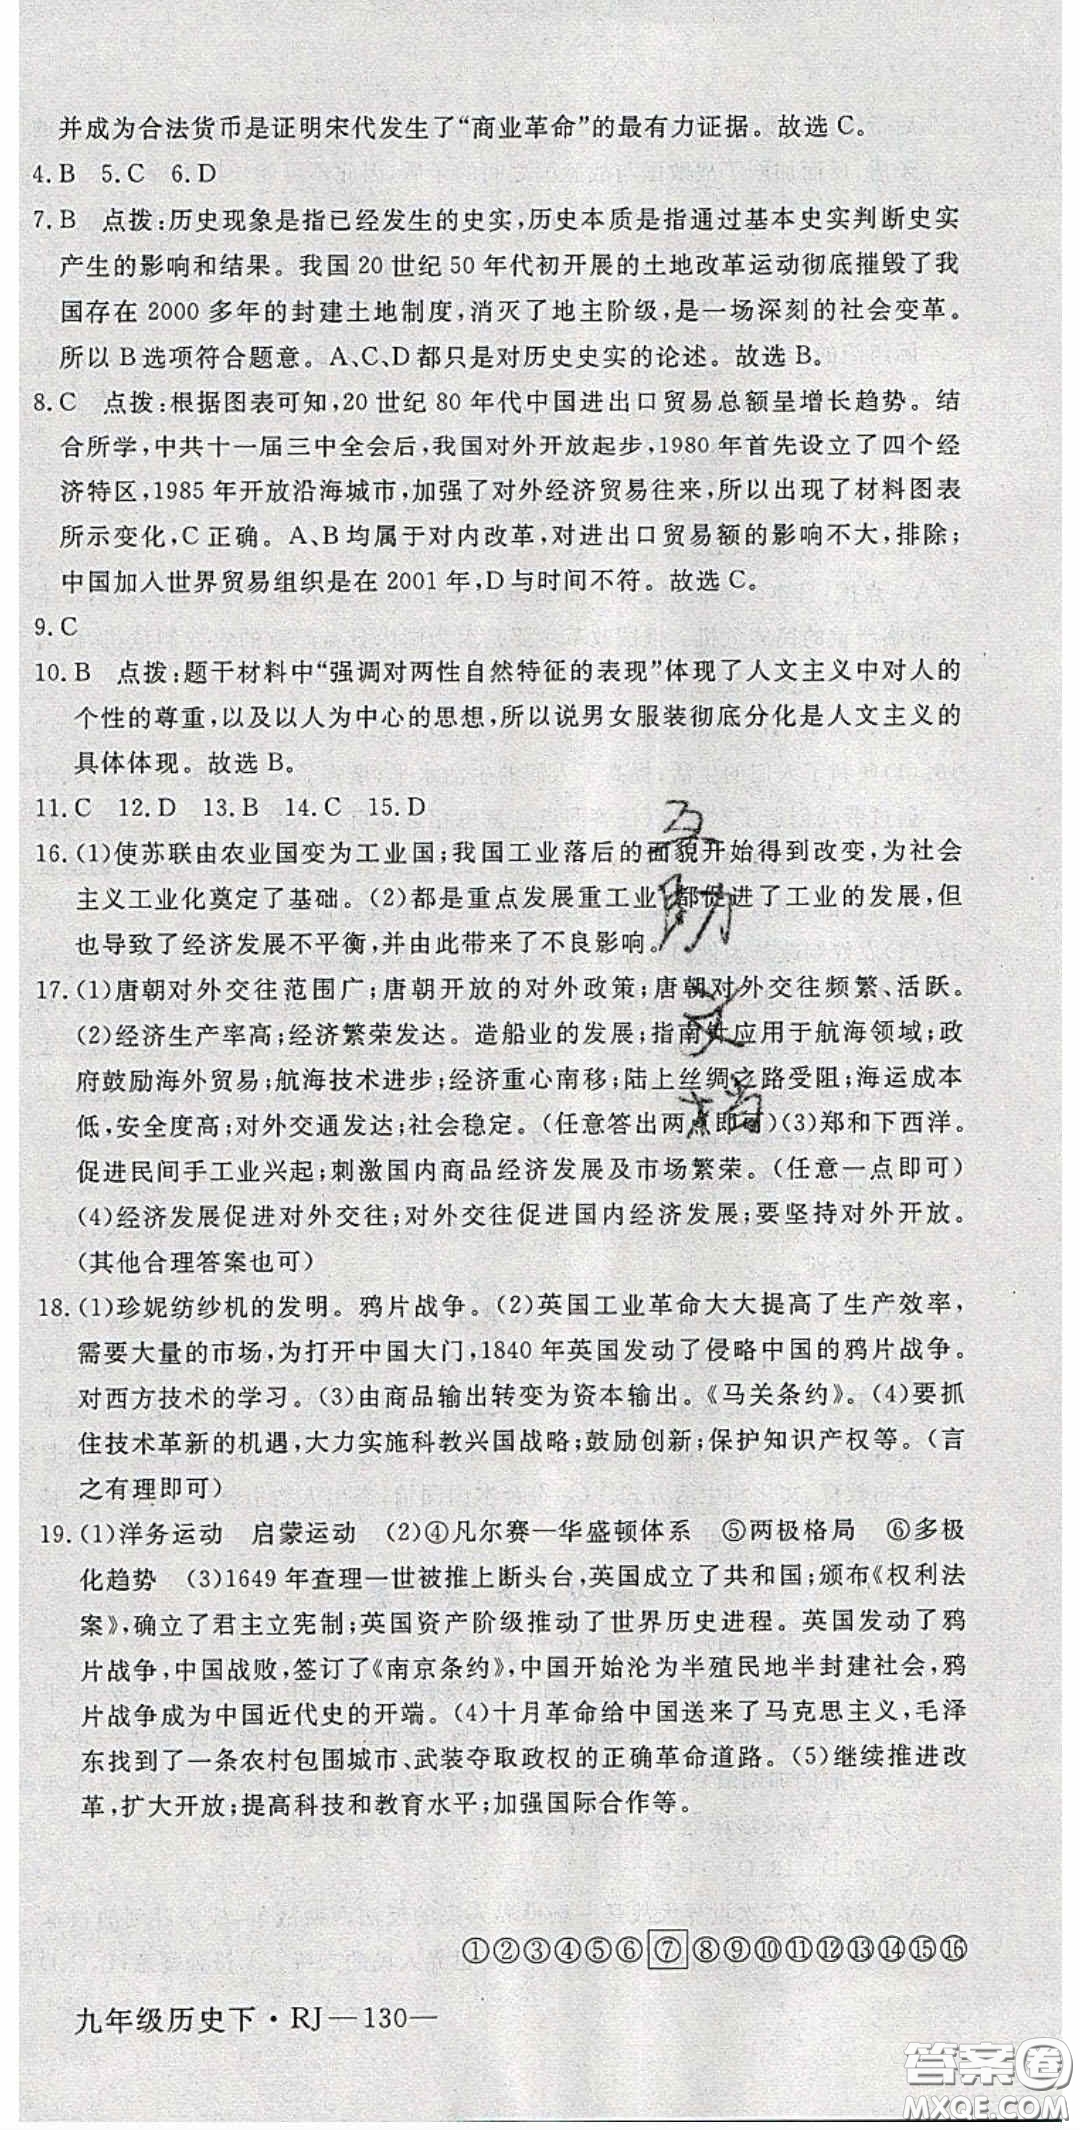 并成为合法货币是证明宋代发生了“商业革命”的最有力证据。故选C。
4. B 5. C 6. D
7. B 点拨:历史现象是指已经发生的史实,历史本质是指通过基本史实判断史实
产生的影响和结果。我国20世纪50年代初开展的土地改革运动彻底摧毁了我
国存在2000多年的封建土地制度,消灭了地主阶级,是一场深刻的社会变革。
所以B选项符合题意。A、C、D都只是对历史史实的论述。故选B。
8. C 点拨:根据图表可知,20世纪80年代中国进出口贸易总额呈增长趋势。结
合所学,中共十一届三中全会后,我国对外开放起步,1980年首先设立了四个经
济特区,1985年开放沿海城市,加强了对外经济贸易往来,所以出现了材料图表
所示变化,C正确。A、B均属于对内改革,对进出口贸易额的影响不大,排除;
中国加入世界贸易组织是在2001年,D与时间不符。故选C。
9. C
10. B 点拨:题干材料中“强调对两性自然特征的表现”体现了人文主义中对人的
个性的尊重,以及以人为中心的思想,所以说男女服装彻底分化是人文主义的
具体体现。故选B。
11. C 12. D 13. B 14. C 15. D
16. (1)使苏联由农业国变为工业国;我国工业落后的面貌开始得到改变,为社会
主义工业化奠定了基础。(2)都是重点发展重工业,都促进了工业的发展,但
也导致了经济发展不平衡,并由此带来了不良影响。
17. (1)唐朝对外交往范围广;唐朝开放的对外政策;唐朝对外交往频繁、活跃。
(2)经济生产率高;经济繁荣发达。造船业的发展;指南针应用于航海领域;政
府鼓励海外贸易;航海技术进步;经济重心南移;陆上丝绸之路受阻;海运成本
低,安全度高;对外交通发达;社会稳定。(任意答出两点即可)(3)郑和下西洋。
促进民间手工业兴起;刺激国内商品经济发展及市场繁荣。(任意一点即可)
(4)经济发展促进对外交往;对外交往促进国内经济发展;要坚持对外开放。
(其他合理答案也可)
18. (1)珍妮纺纱机的发明。鸦片战争。(2)英国工业革命大大提高了生产效率,
需要大量的市场,为打开中国大门,1840年英国发动了侵略中国的鸦片战争。
对西方技术的学习。(3)由商品输出转变为资本输出。《马关条约》。(4)要抓
住技术革新的机遇,大力实施科教兴国战略;鼓励创新;保护知识产权等。(言
之有理即可)
19. (1)洋务运动 启蒙运动 (2)④凡尔赛—华盛顿体系 ⑤两极格局 ⑥多极
化趋势 (3)1649年查理一世被推上断头台,英国成立了共和国;颁布《权利法
案》,确立了君主立宪制;英国资产阶级推动了世界历史进程。英国发动了鸦
片战争,中国战败,签订了《南京条约》,中国开始沦为半殖民地半封建社会,鸦
片战争成为中国近代史的开端。(4)十月革命给中国送来了马克思主义,毛泽
东找到了一条农村包围城市、武装夺取政权的正确革命道路。(5)继续推进改
革,扩大开放;提高科技和教育水平;加强国际合作等。
①②③④⑤⑥⑦⑧⑨⑩⑪⑫⑬⑭⑮⑯
九年级历史下·RJ—130—
答案圈
MXQE.COM